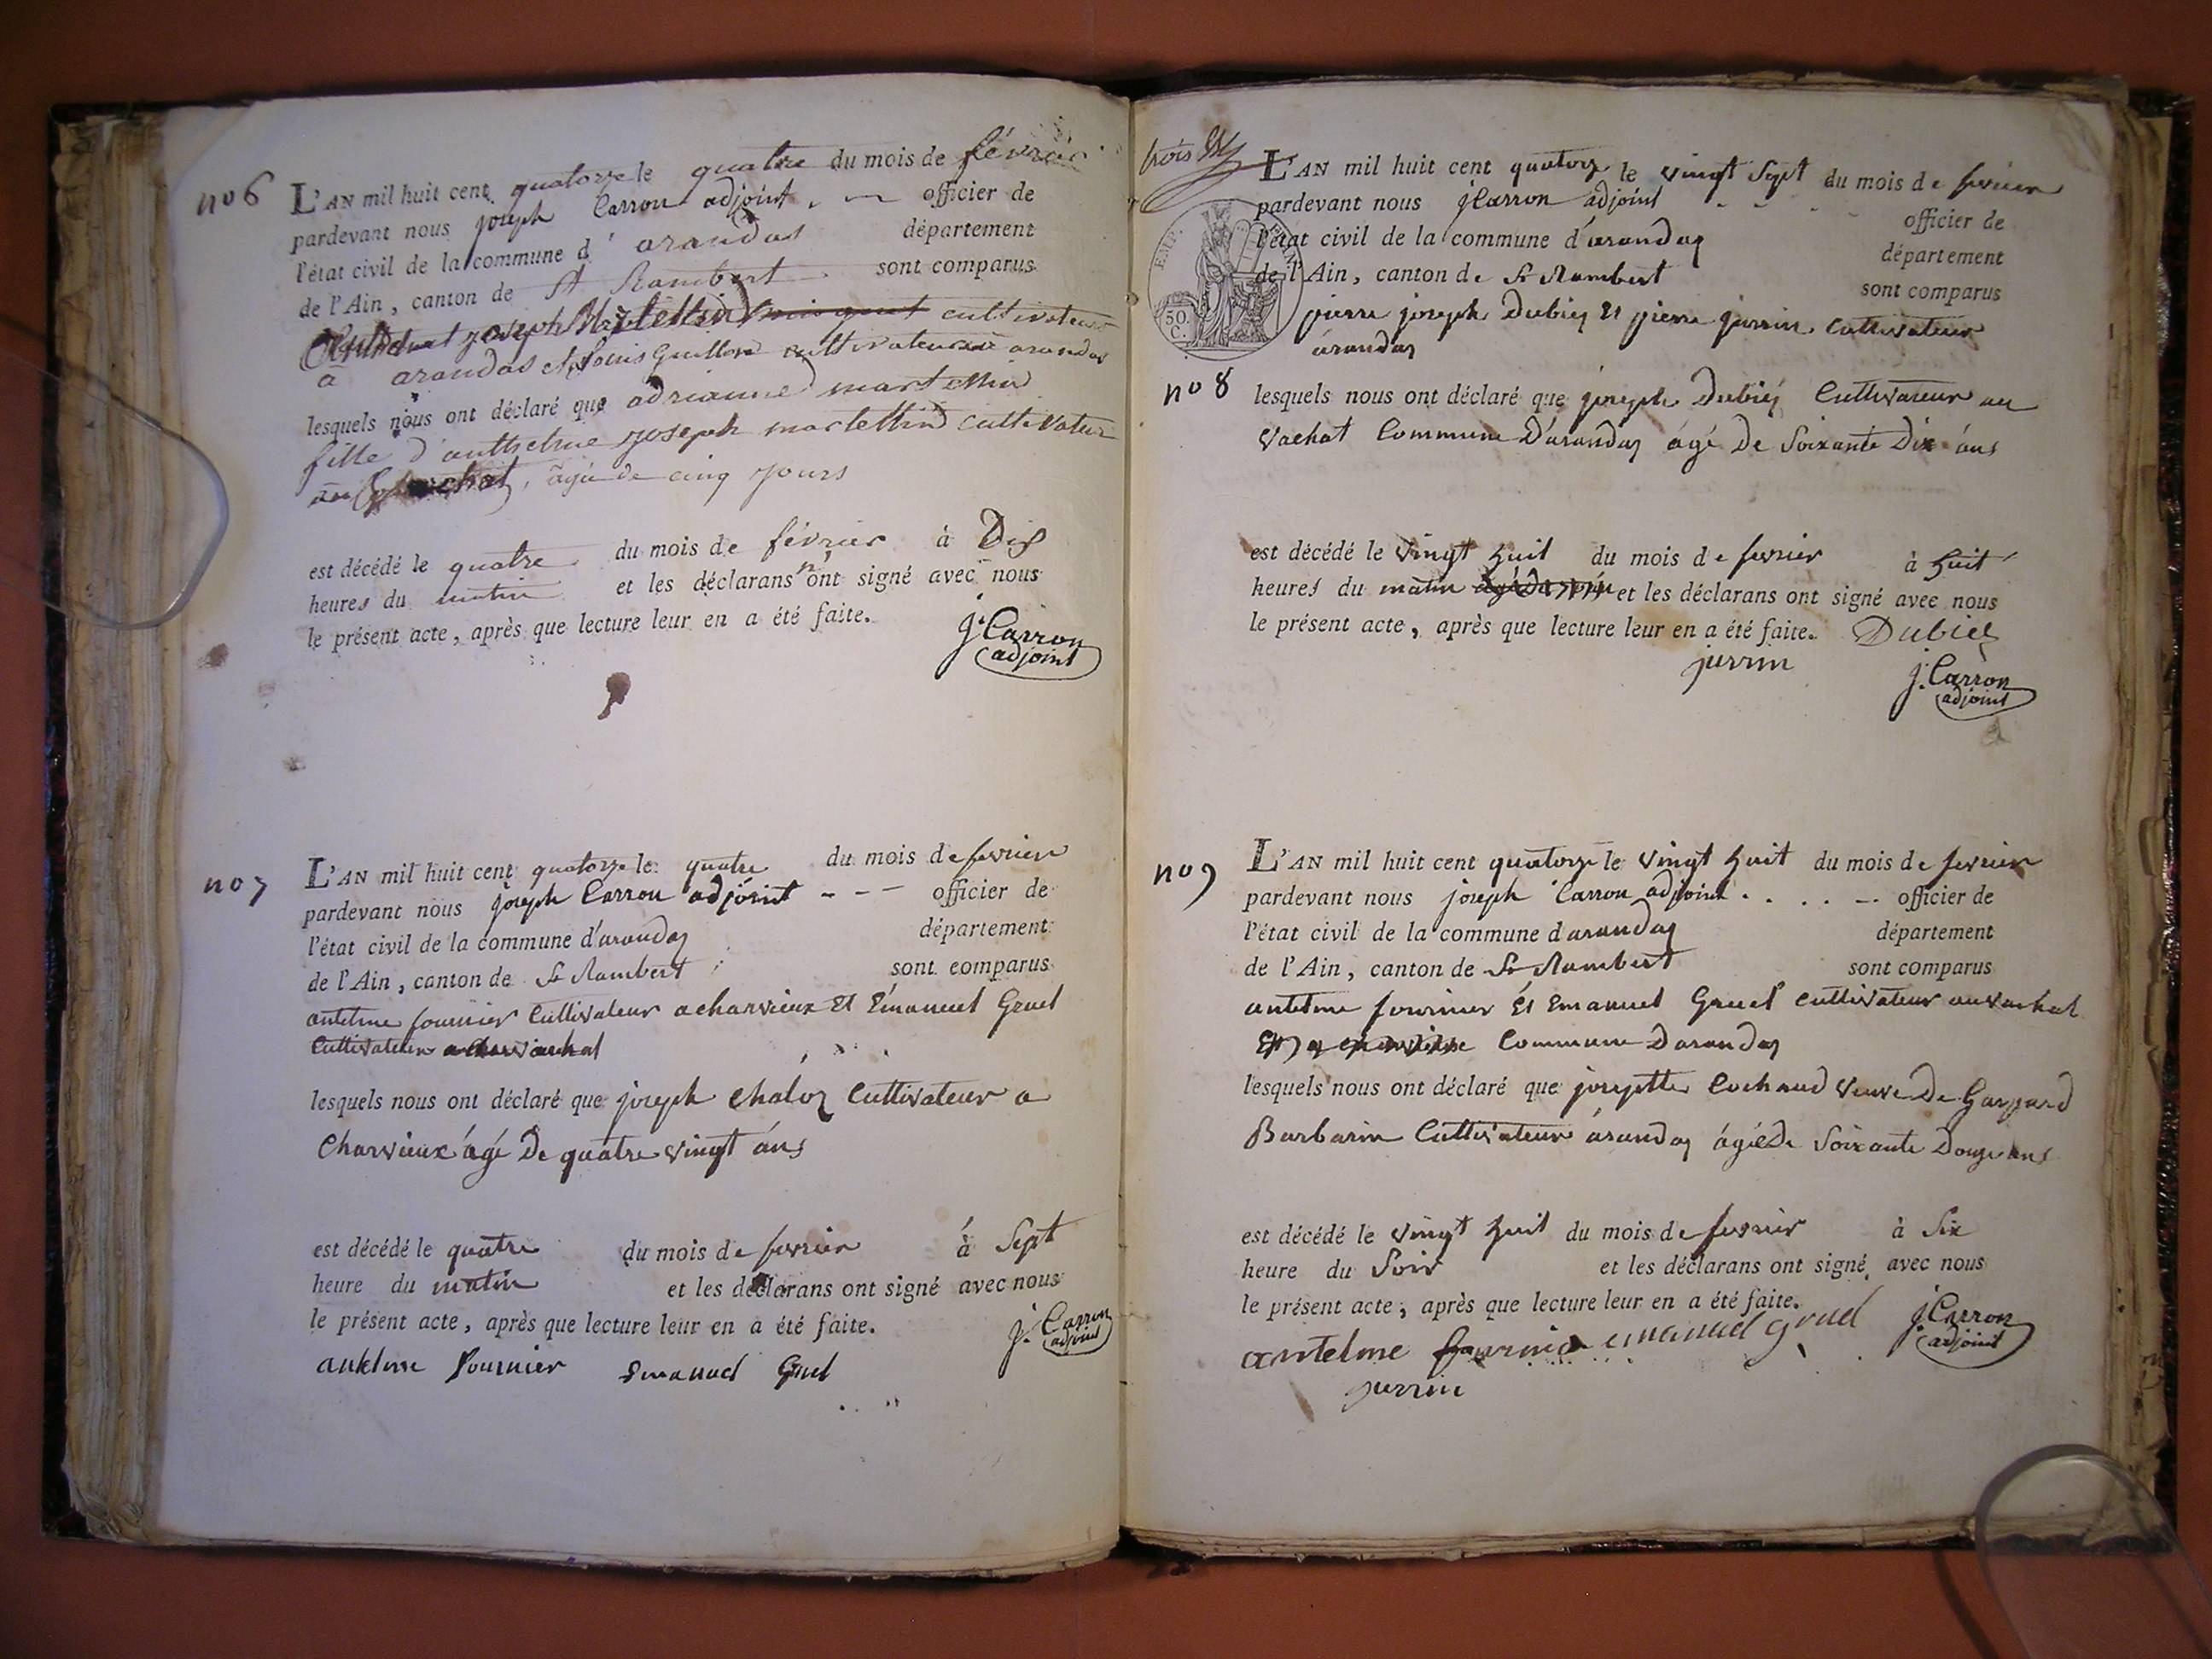 no 6
L'AN mil huit cent quatorze le quatre du mois de février
pardevant nous joseph Carron adjoint officier de
l'état civil de la commune d'arandas département
de l'Ain, canton de St Rambert sont comparus
joseph Martellin cultivateur
à arandas et Louis Guillon cultivateur à arandas
lesquels nous ont déclaré que adrianne martellin
fille d'anthelme joseph martellin cultivateur
au vachat, agée de cinq jours
est décédé le quatre du mois de février à Dix
heures du matin et les déclarans n'ont signé avec nous
le présent acte, après que lecture leur en a été faite.
j. Carron
adjoint
no 7
L'AN mil huit cent quatorze le quatre du mois de fevrier
pardevant nous joseph Carron adjoint - - - officier de
l'état civil de la commune d'arandas département
de l'Ain, canton de St Rambert sont comparus
antelme fournier Cultivateur a charvieux Et Emanuel Gruel
Cultivateur vachat
lesquels nous ont déclaré que joseph Chaloz Cultivateur a
Charvieux agé De quatre vingt ans
est décédé le quatre du mois de fevrier à Sept
heure du matin et les déclarans ont signé avec nous
le présent acte, après que lecture leur en a été faite.
j. Carron
adjoint
antelme fournier Emanuel Gruel
trois
L'AN mil huit cent quatorze le vingt Sept du mois de fevrier
pardevant nous j Carron adjoint officier de
l'état civil de la commune d'arandas département
de l'Ain, canton de St Rambert sont comparus
EMP.
50.
C.
pierre joseph Dubiez Et pierre jurrin Cultivateur
arandas
no 8
lesquels nous ont déclaré que joseph Dubiez Cultivateur au
vachat Commune D'arandas agé De Soixante Dix ans
est décédé le vingt huit du mois de fevrier à huit
heures du matin et les déclarans ont signé avec nous
le présent acte, après que lecture leur en a été faite. Dubiez
jurrin
j. Carron
adjoint
no 9
L'AN mil huit cent quatorze le vingt huit du mois de fevrier
pardevant nous joseph Carron adjoint officier de
l'état civil de la commune d'arandas département
de l'Ain, canton de St Rambert sont comparus
antelme fournier Et Emanuel Gruel cultivateur au vachat
Commune Darandas
lesquels nous ont déclaré que josephte Cochaud veuve De Gaspard
Barbarin Cultivateur arandas agée De Soixante Douze ans
est décédé le vingt huit du mois de fevrier à Six
heure du Soir et les déclarans ont signé avec nous
le présent acte, après que lecture leur en a été faite.
j. Carron
adjoint
antelme fournier emanuel gruel
jurrin